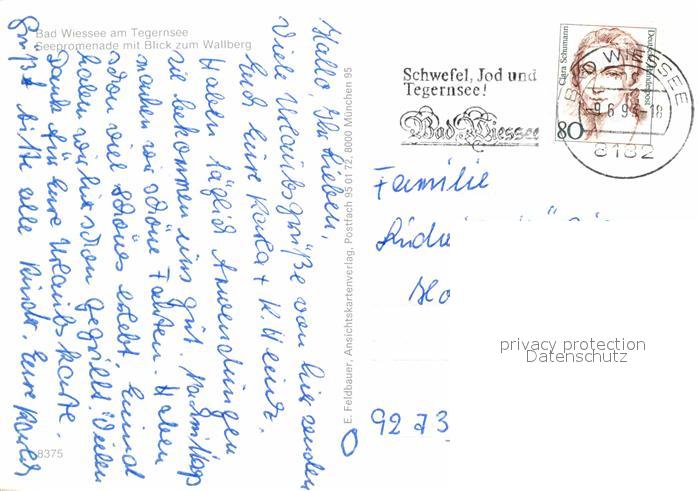 Bad Wiessee am Tegernsee
Seepromenade mit Blick zum Wallberg
Hallo, Ihr Lieben,
Viele Urlaubsgrüße von hier senden
Euch Eure Karla + K. Heinz.
Haben täglich Anwendungen
sie bekommen uns gut. Nachmittags
machen wir schöne Fahrten. Haben
schon viel schönes erlebt. Einmal
haben wir hier schon gegrillt. Vielen
Dank für Eure Urlaubskarte.
Grüßt bitte alle Kinder. Eure Karla
8375
E. Feldbauer, Ansichtskartenverlag, Postfach 95 01 72, 8000 München 95
Schwefel, Jod und
Tegernsee!
Bad Wiessee
Clara Schumann
Deutsche Bundespost
80
BAD WIESSEE
8182
Familie
O 9273
privacy protection
Datenschutz